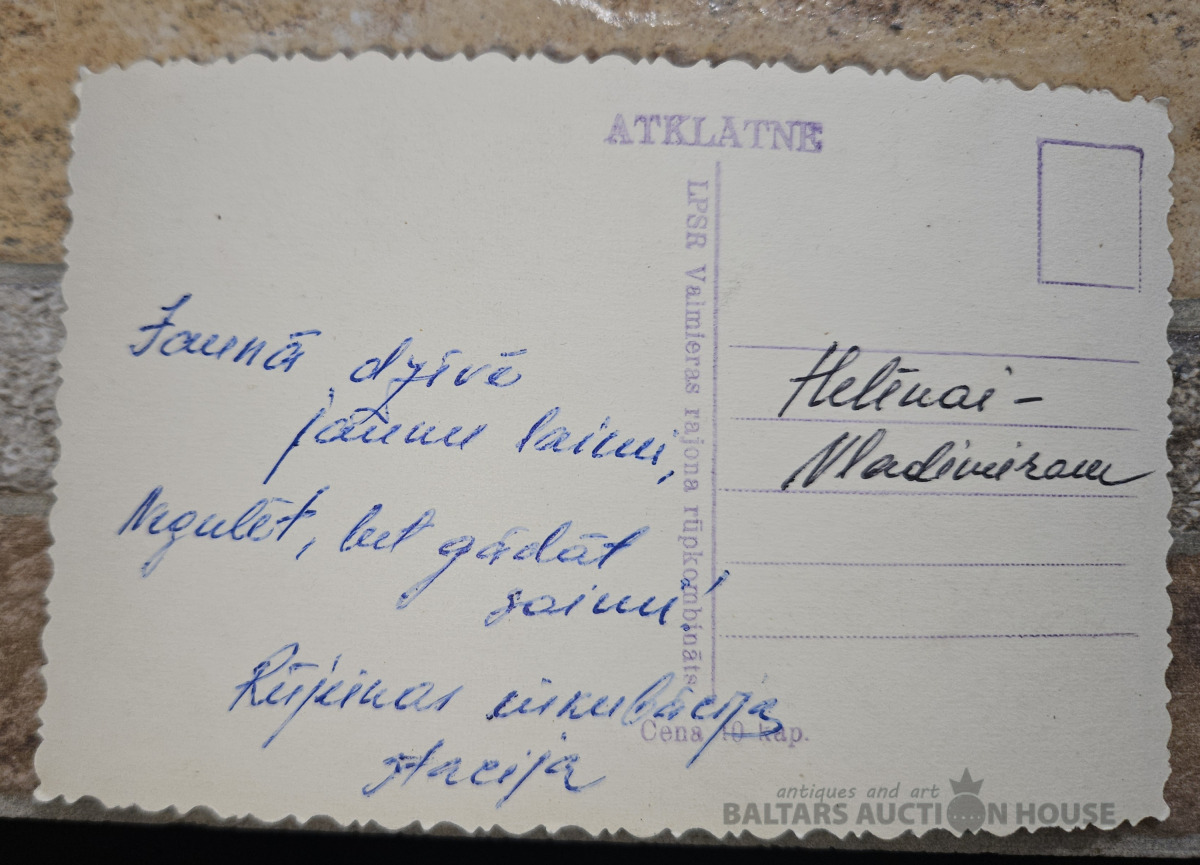 ATKLATNE
LPSR Valmieras rajona rūpkombināts
Jaunā dzīvē
jaunu laimi,
Negulēt, bet gādāt
saimi!
Rūjienas inkubācija
stacija
Helēnai -
Vladimiram
Cena 10 kap.
antiques and art
BALTARS AUCTION HOUSE